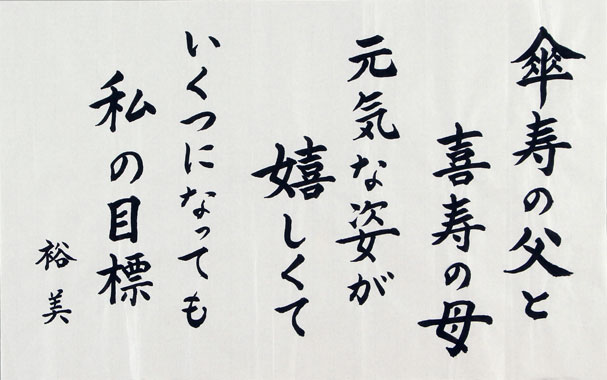 傘寿の父と
喜寿の母
元気な姿が
嬉しくて
いくつになっても
私の目標
裕美